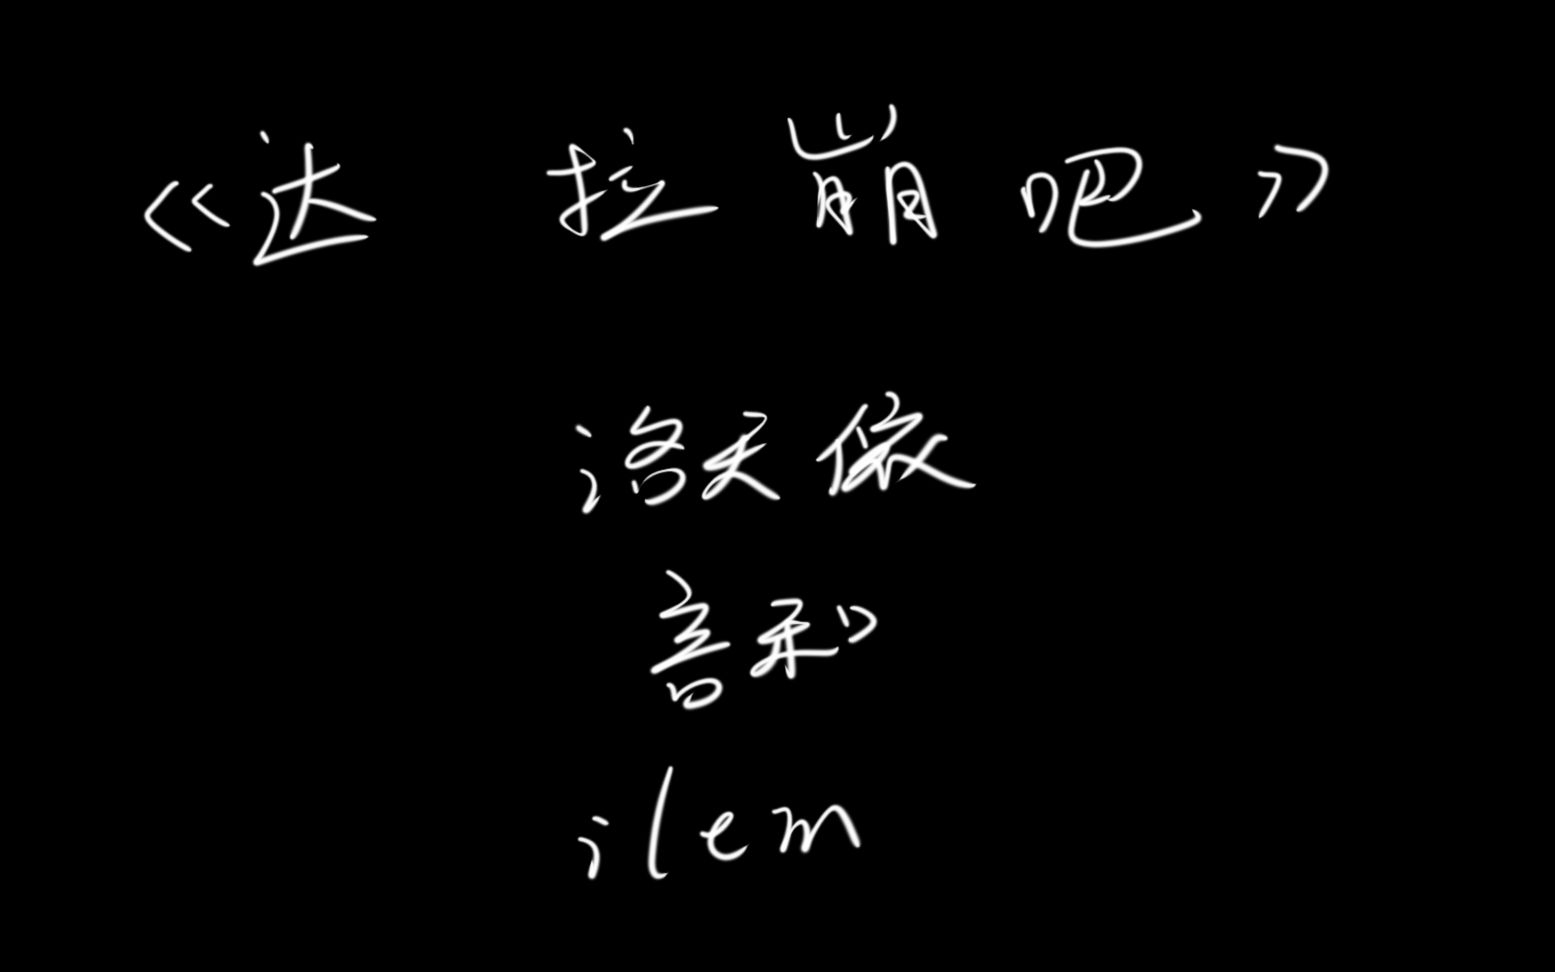 《达拉崩吧》
洛天依
言和
ilem